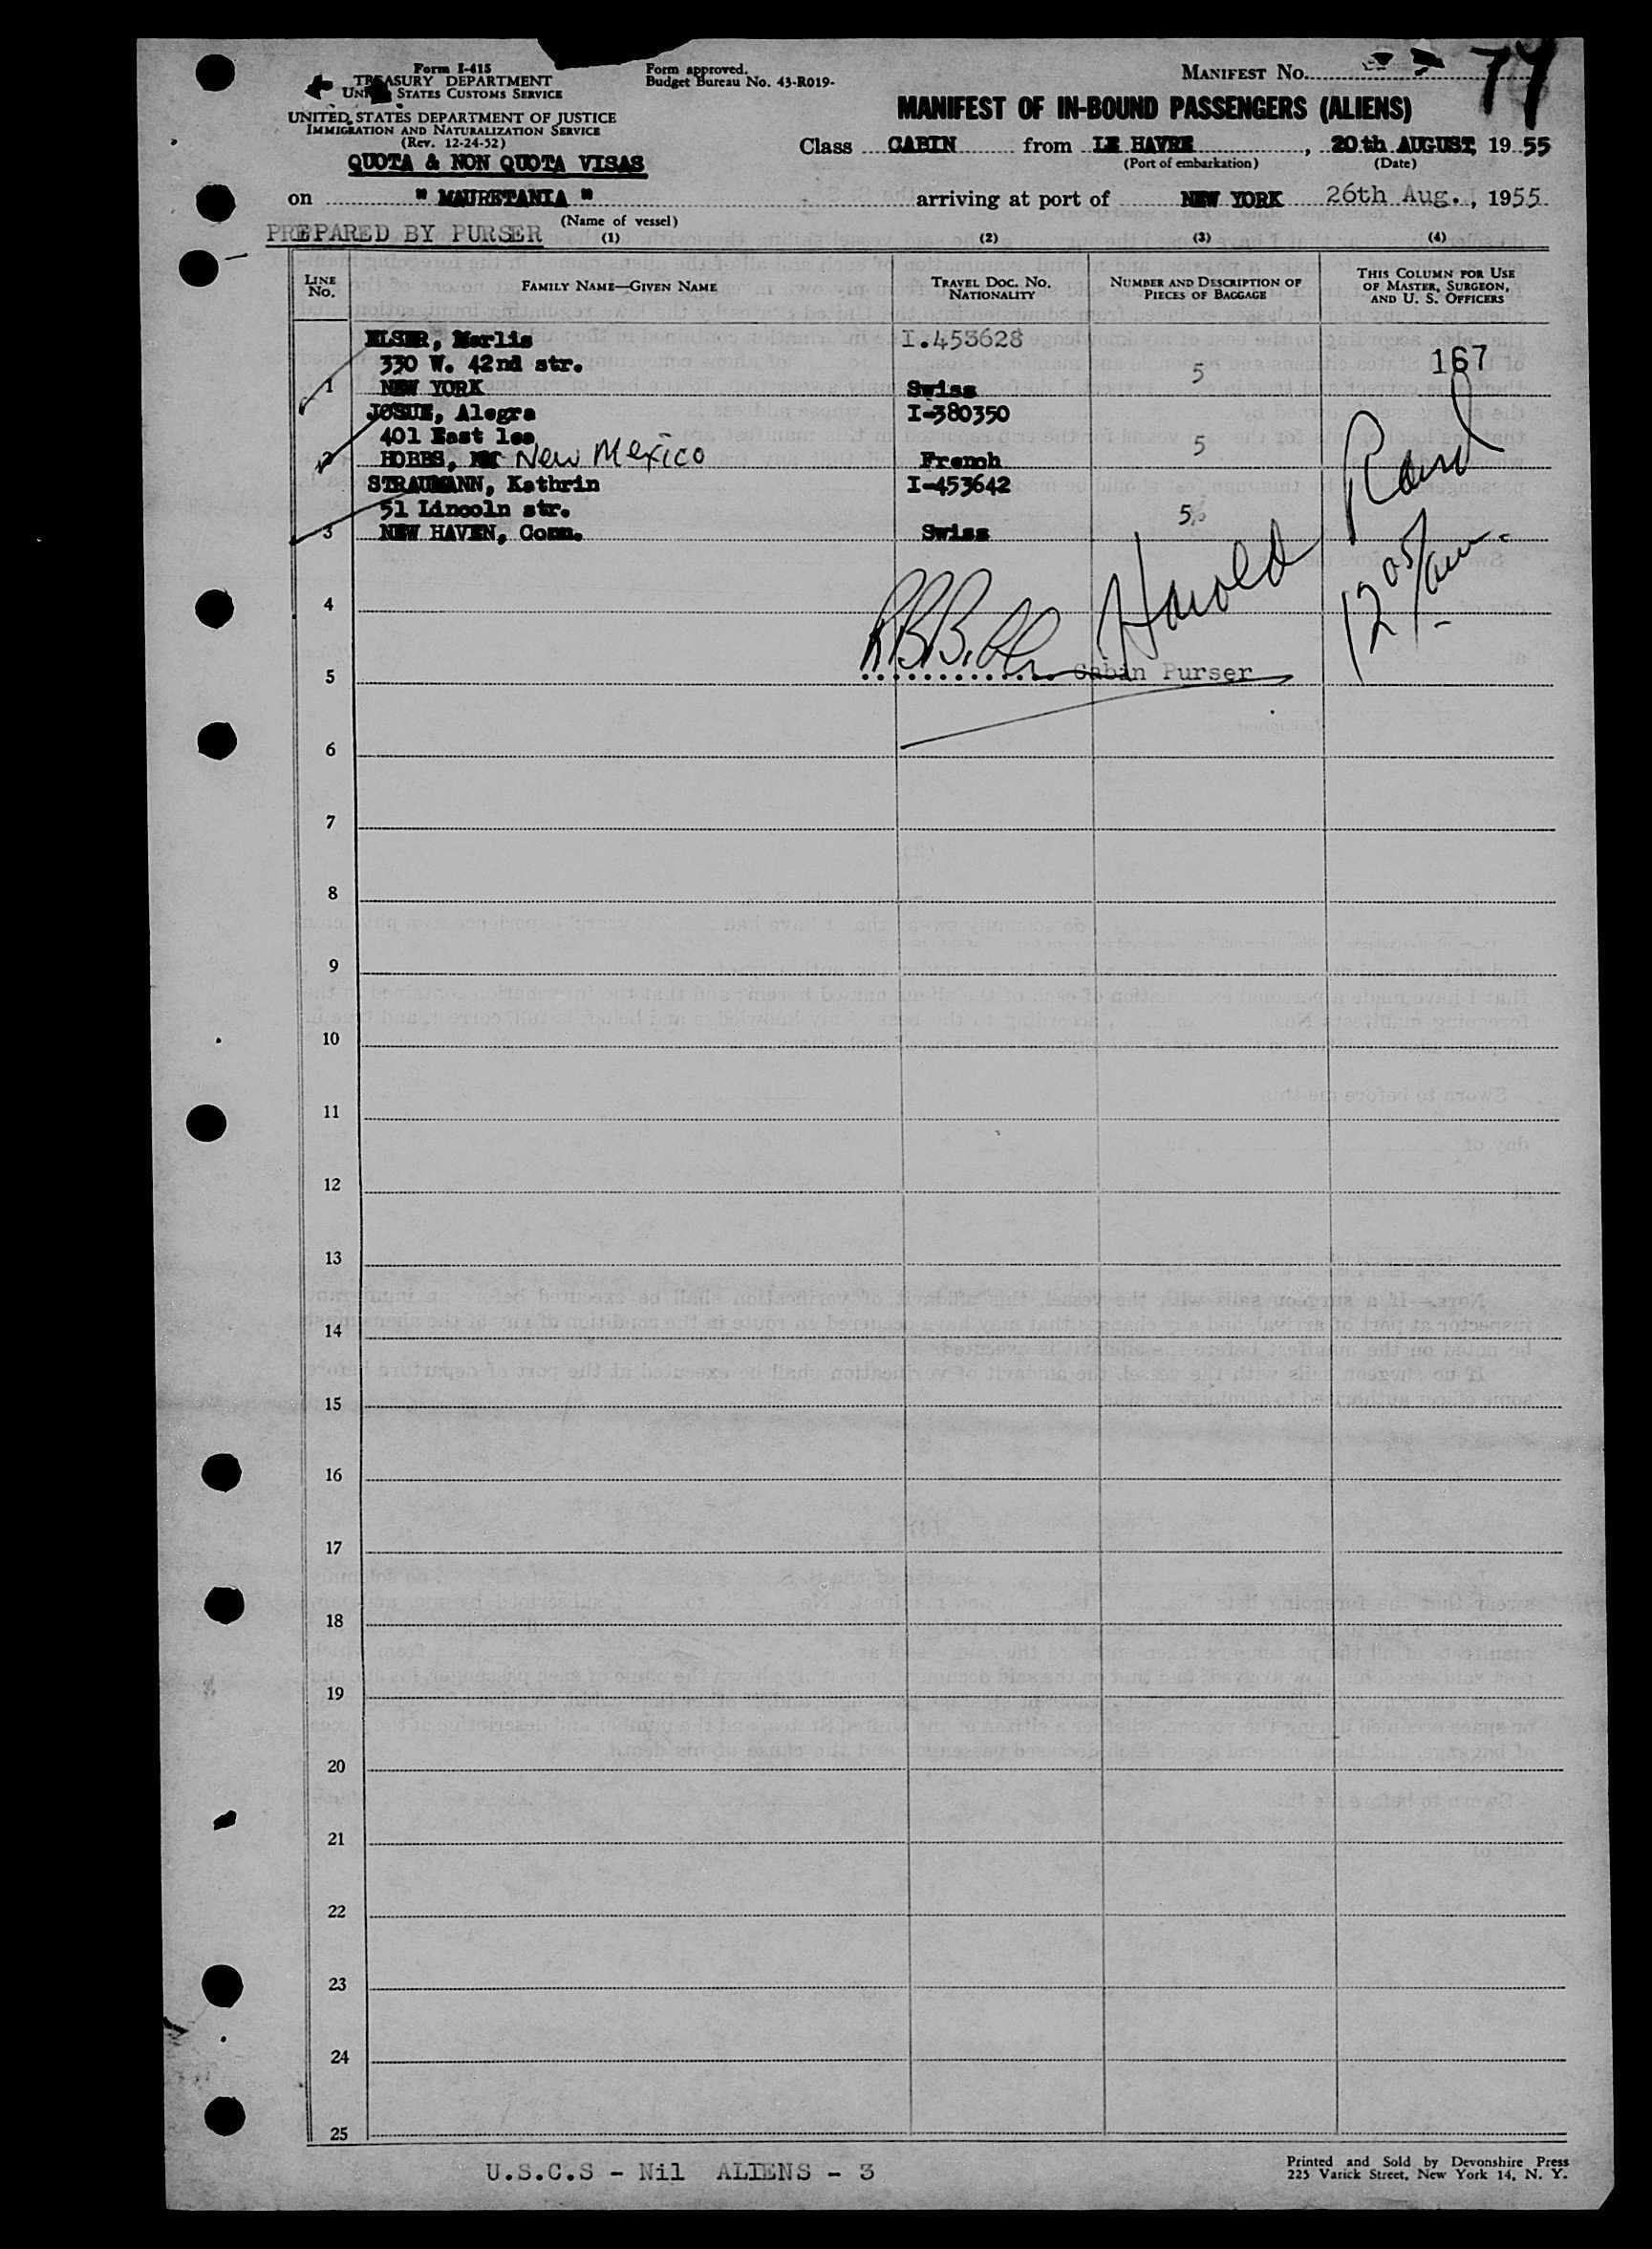 Form I-415
TREASURY DEPARTMENT
UNITED STATES CUSTOMS SERVICE
UNITED STATES DEPARTMENT OF JUSTICE
IMMIGRATION AND NATURALIZATION SERVICE
(Rev. 12-24-52)
QUOTA & NON QUOTA VISAS
Form approved.
Budget Bureau No. 43-R019-
MANIFEST NO. 77
MANIFEST OF IN-BOUND PASSENGERS (ALIENS)
Class CABIN from LE HAVRE, 20th AUGUST, 1955
(Port of embarkation) (Date)
on " MAURETANIA " arriving at port of NEW YORK 26th Aug., 1955
(Name of vessel)
PREPARED BY PURSER
(1) (2) (3) (4)
LINE NO. FAMILY NAME—GIVEN NAME TRAVEL DOC. NO. NATIONALITY NUMBER AND DESCRIPTION OF PIECES OF BAGGAGE THIS COLUMN FOR USE OF MASTER, SURGEON, AND U. S. OFFICERS
ELSER, Merlis I.453628
330 W. 42nd str. 5 167
1 NEW YORK Swiss
JOSUE, Alegra I-380350
401 East lea 5
2 HOBBS, New Mexico French
STRAUMANN, Kathrin I-453642
51 Lincoln str. 5
3 NEW HAVEN, Conn. Swiss
Harold Rand
12 05/am.
4
Cabin Purser
5
6
7
8
9
10
11
12
13
14
15
16
17
18
19
20
21
22
23
24
25
U.S.C.S - Nil ALIENS - 3
Printed and Sold by Devonshire Press
225 Varick Street, New York 14, N. Y.